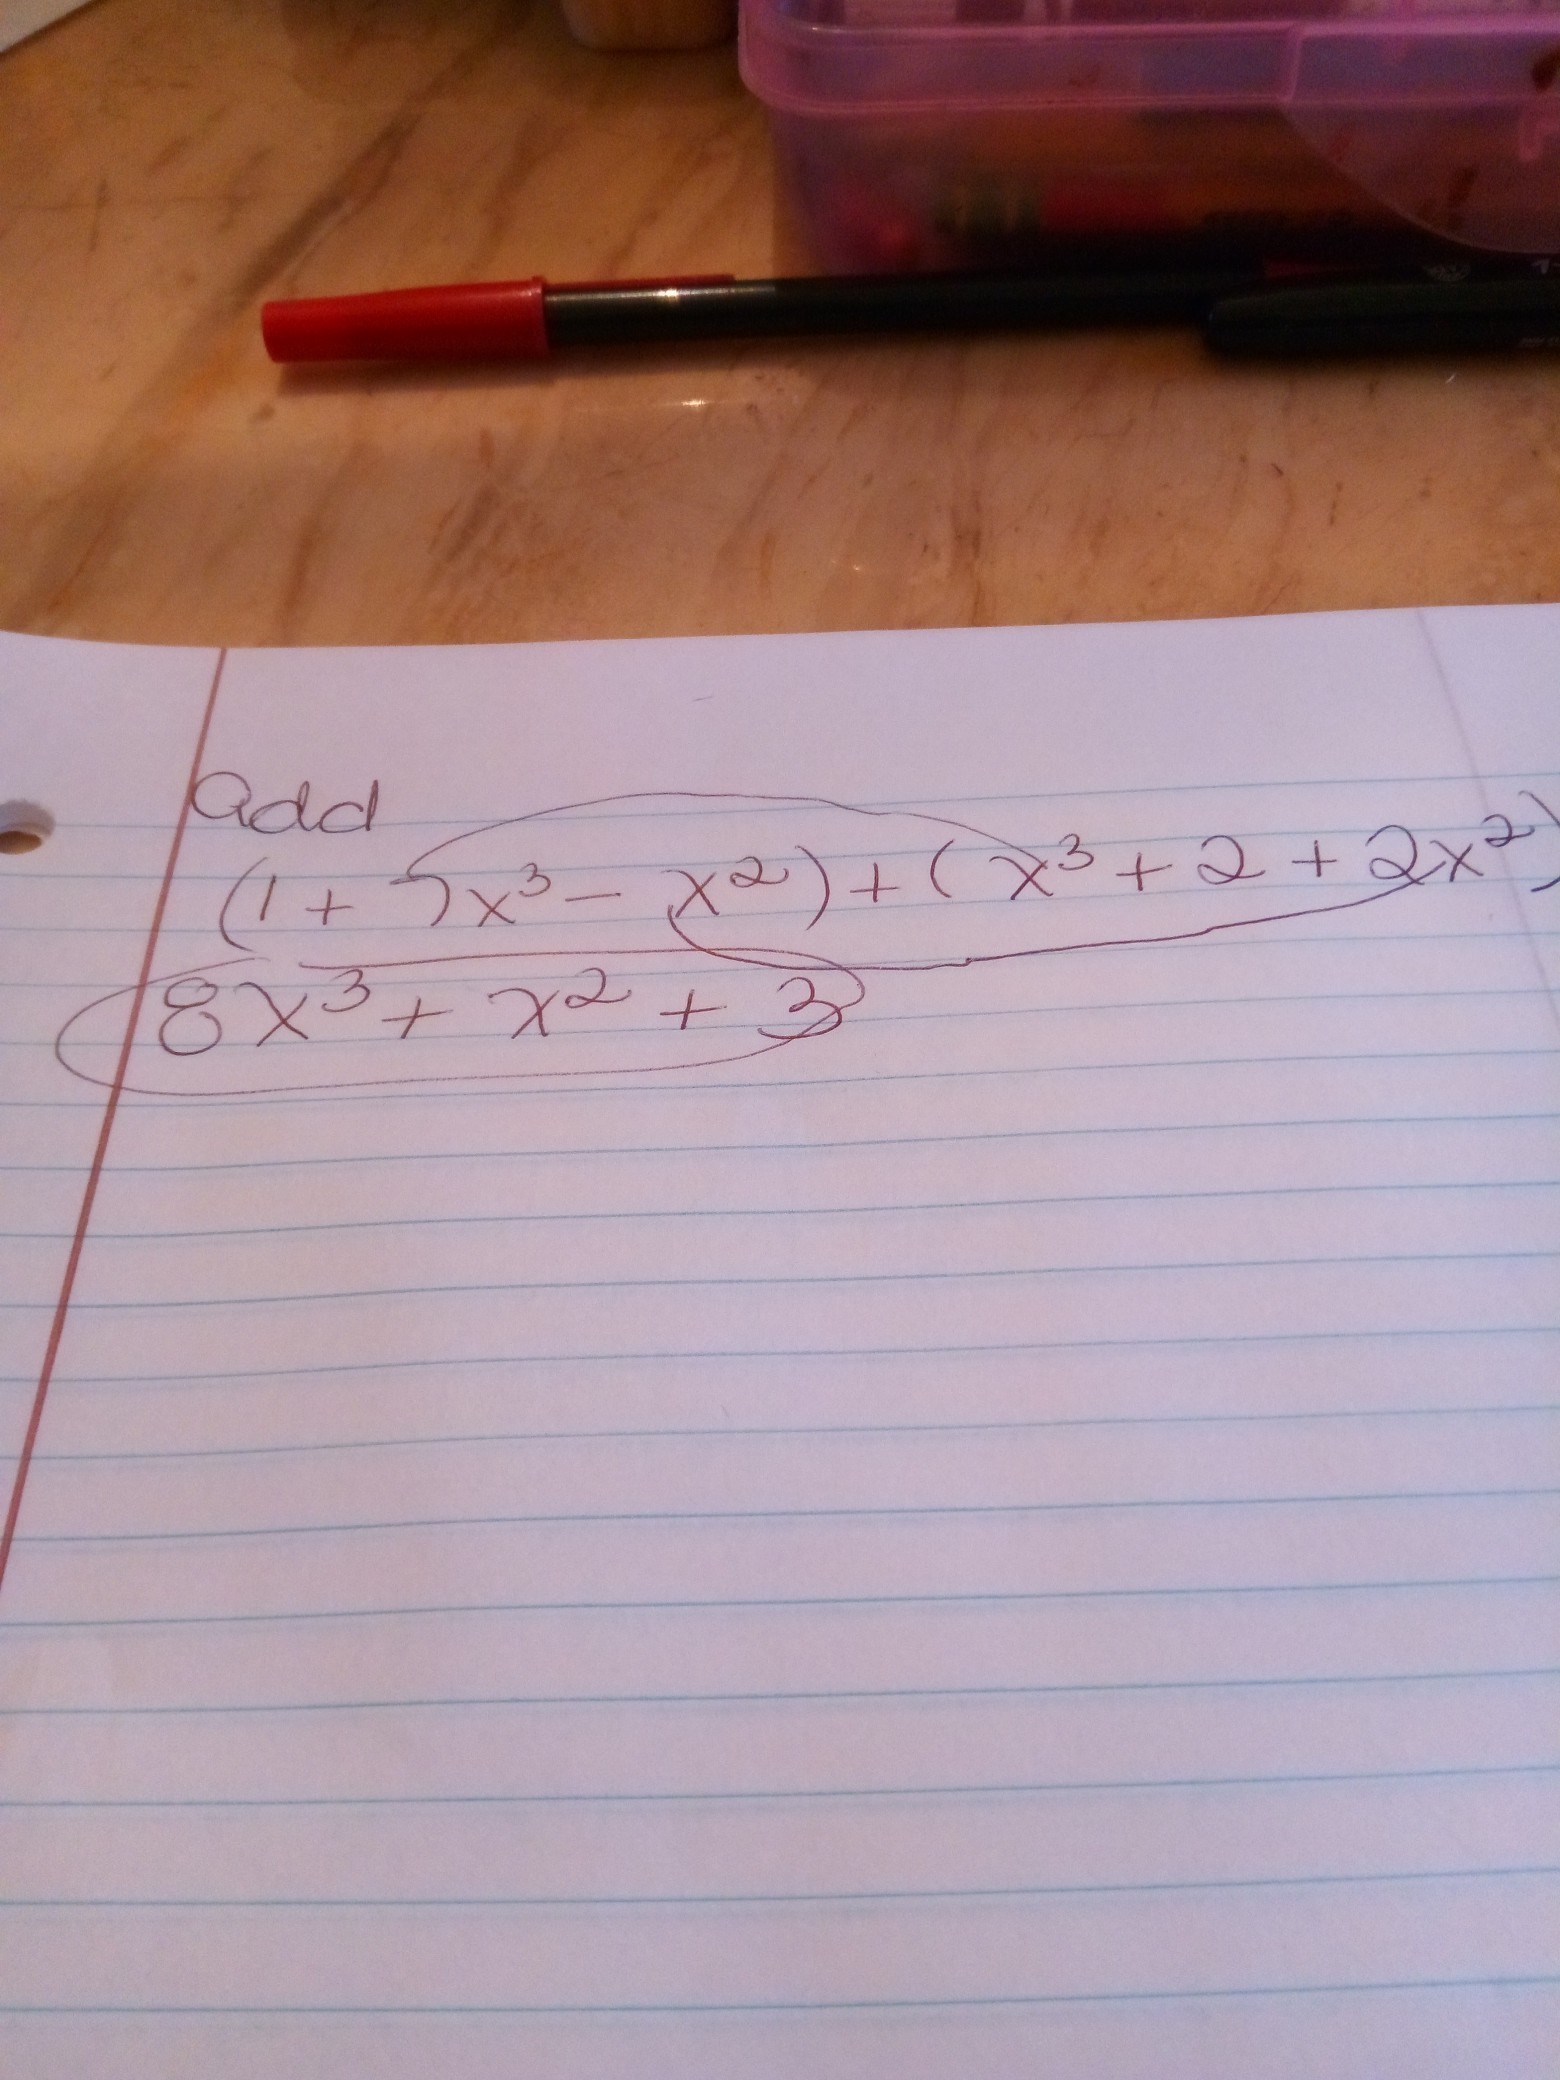 add
(1 + 7x³ - x²) + (x³ + 2 + 2x²)
8x³ + x² + 3